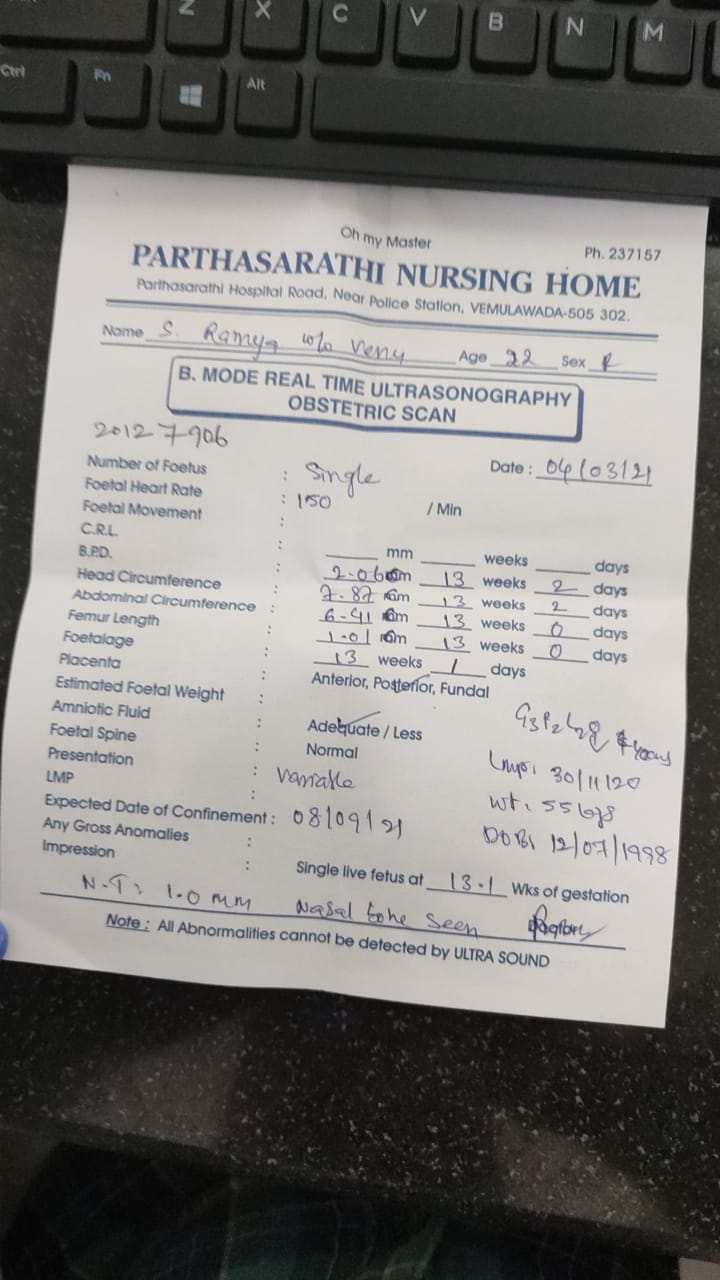 Z X C V B N M
Ctrl Fn Alt
Oh my Master
Ph. 237157
PARTHASARATHI NURSING HOME
Parthasarathi Hospital Road, Near Police Station, VEMULAWADA-505 302.
Name S. Ramya w/o Venu Age 22 Sex F
B. MODE REAL TIME ULTRASONOGRAPHY
OBSTETRIC SCAN
20127906
Date : 04/03/21
Number of Foetus : Single
Foetal Heart Rate : 150 / Min
Foetal Movement :
C.R.L. : mm weeks days
B.P.D. : 2.06 cm 13 weeks 2 days
Head Circumference : 7.87 cm 13 weeks 2 days
Abdominal Circumference : 6.41 cm 13 weeks 0 days
Femur Length : 1.01 cm 13 weeks 0 days
Foetalage : 13 weeks 1 days
Placenta : Anterior, Posterior, Fundal
Estimated Foetal Weight :
Amniotic Fluid : Adequate / Less
Foetal Spine : Normal
Presentation : Variable
LMP :
Expected Date of Confinement : 08/09/21
Any Gross Anomalies :
Impression : Single live fetus at 13.1 Wks of gestation
G3P2L2
Lmp: 30/11/20
wt: 55 kgs
DOB: 12/07/1998
N.T: 1.0 mm Nasal bone seen
Note : All Abnormalities cannot be detected by ULTRA SOUND